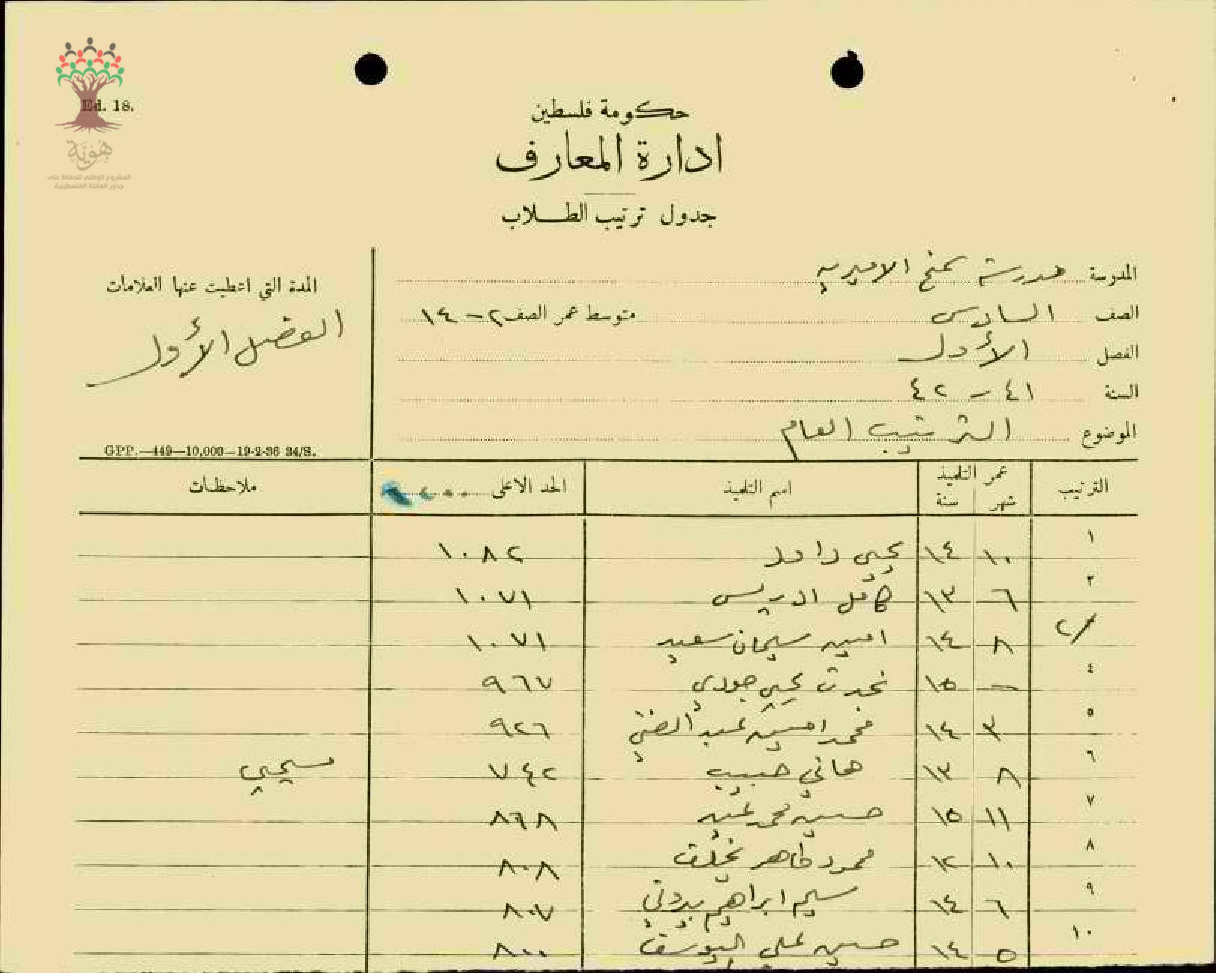 Ed. 18.
هوية
المشروع الوطني للحفاظ على
جذور العائلة الفلسطينية
حكومة فلسطين
ادارة المعارف
جدول ترتيب الطلاب
المدرسة مدرسة سمخ الاميرية
الصف السادس متوسط عمر الصف ٢-١٤
الفصل الأول
السنة ٤١ - ٤٢
الموضوع الترتيب العام
المدة التي اعطيت عنها العلامات
الفصل الأول
GPP.—449—10,000—19-2-36 34/S.
الترتيب عمر التلميذ شهر سنة اسم التلميذ الحد الاعلى ملاحظات
١ ١٠ ١٤ يحيى داود ١٠٨٢
٢ ٦ ١٣ كامل ادريس ١٠٧١
٢ ٨ ١٤ امين سليمان سعيد ١٠٧١
٤ - ١٥ نجدت يحيى جودي ٩٦٧
٥ ٣ ١٤ محمد امين عبد الغني ٩٢٦
٦ ٨ ١٣ هاني حبيب ٧٤٢ مسيحي
٧ ١١ ١٥ حسين محمد عبيد ٨٦٨
٨ ١٠ ١٢ محمود ظاهر مخلف ٨٠٨
٩ ٦ ١٤ سليم ابراهيم ٨٠٧
١٠ ٥ ١٤ حسين علي اليوسف ٨٠٠